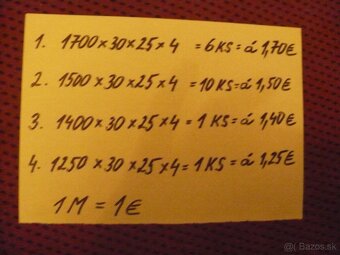 1. 1700×30×25×4 = 6KS = á 1,70€
2. 1500×30×25×4 = 10KS = á 1,50€
3. 1400×30×25×4 = 1KS = á 1,40€
4. 1250×30×25×4 = 1KS = á 1,25€
1M = 1€
© Bazos.sk